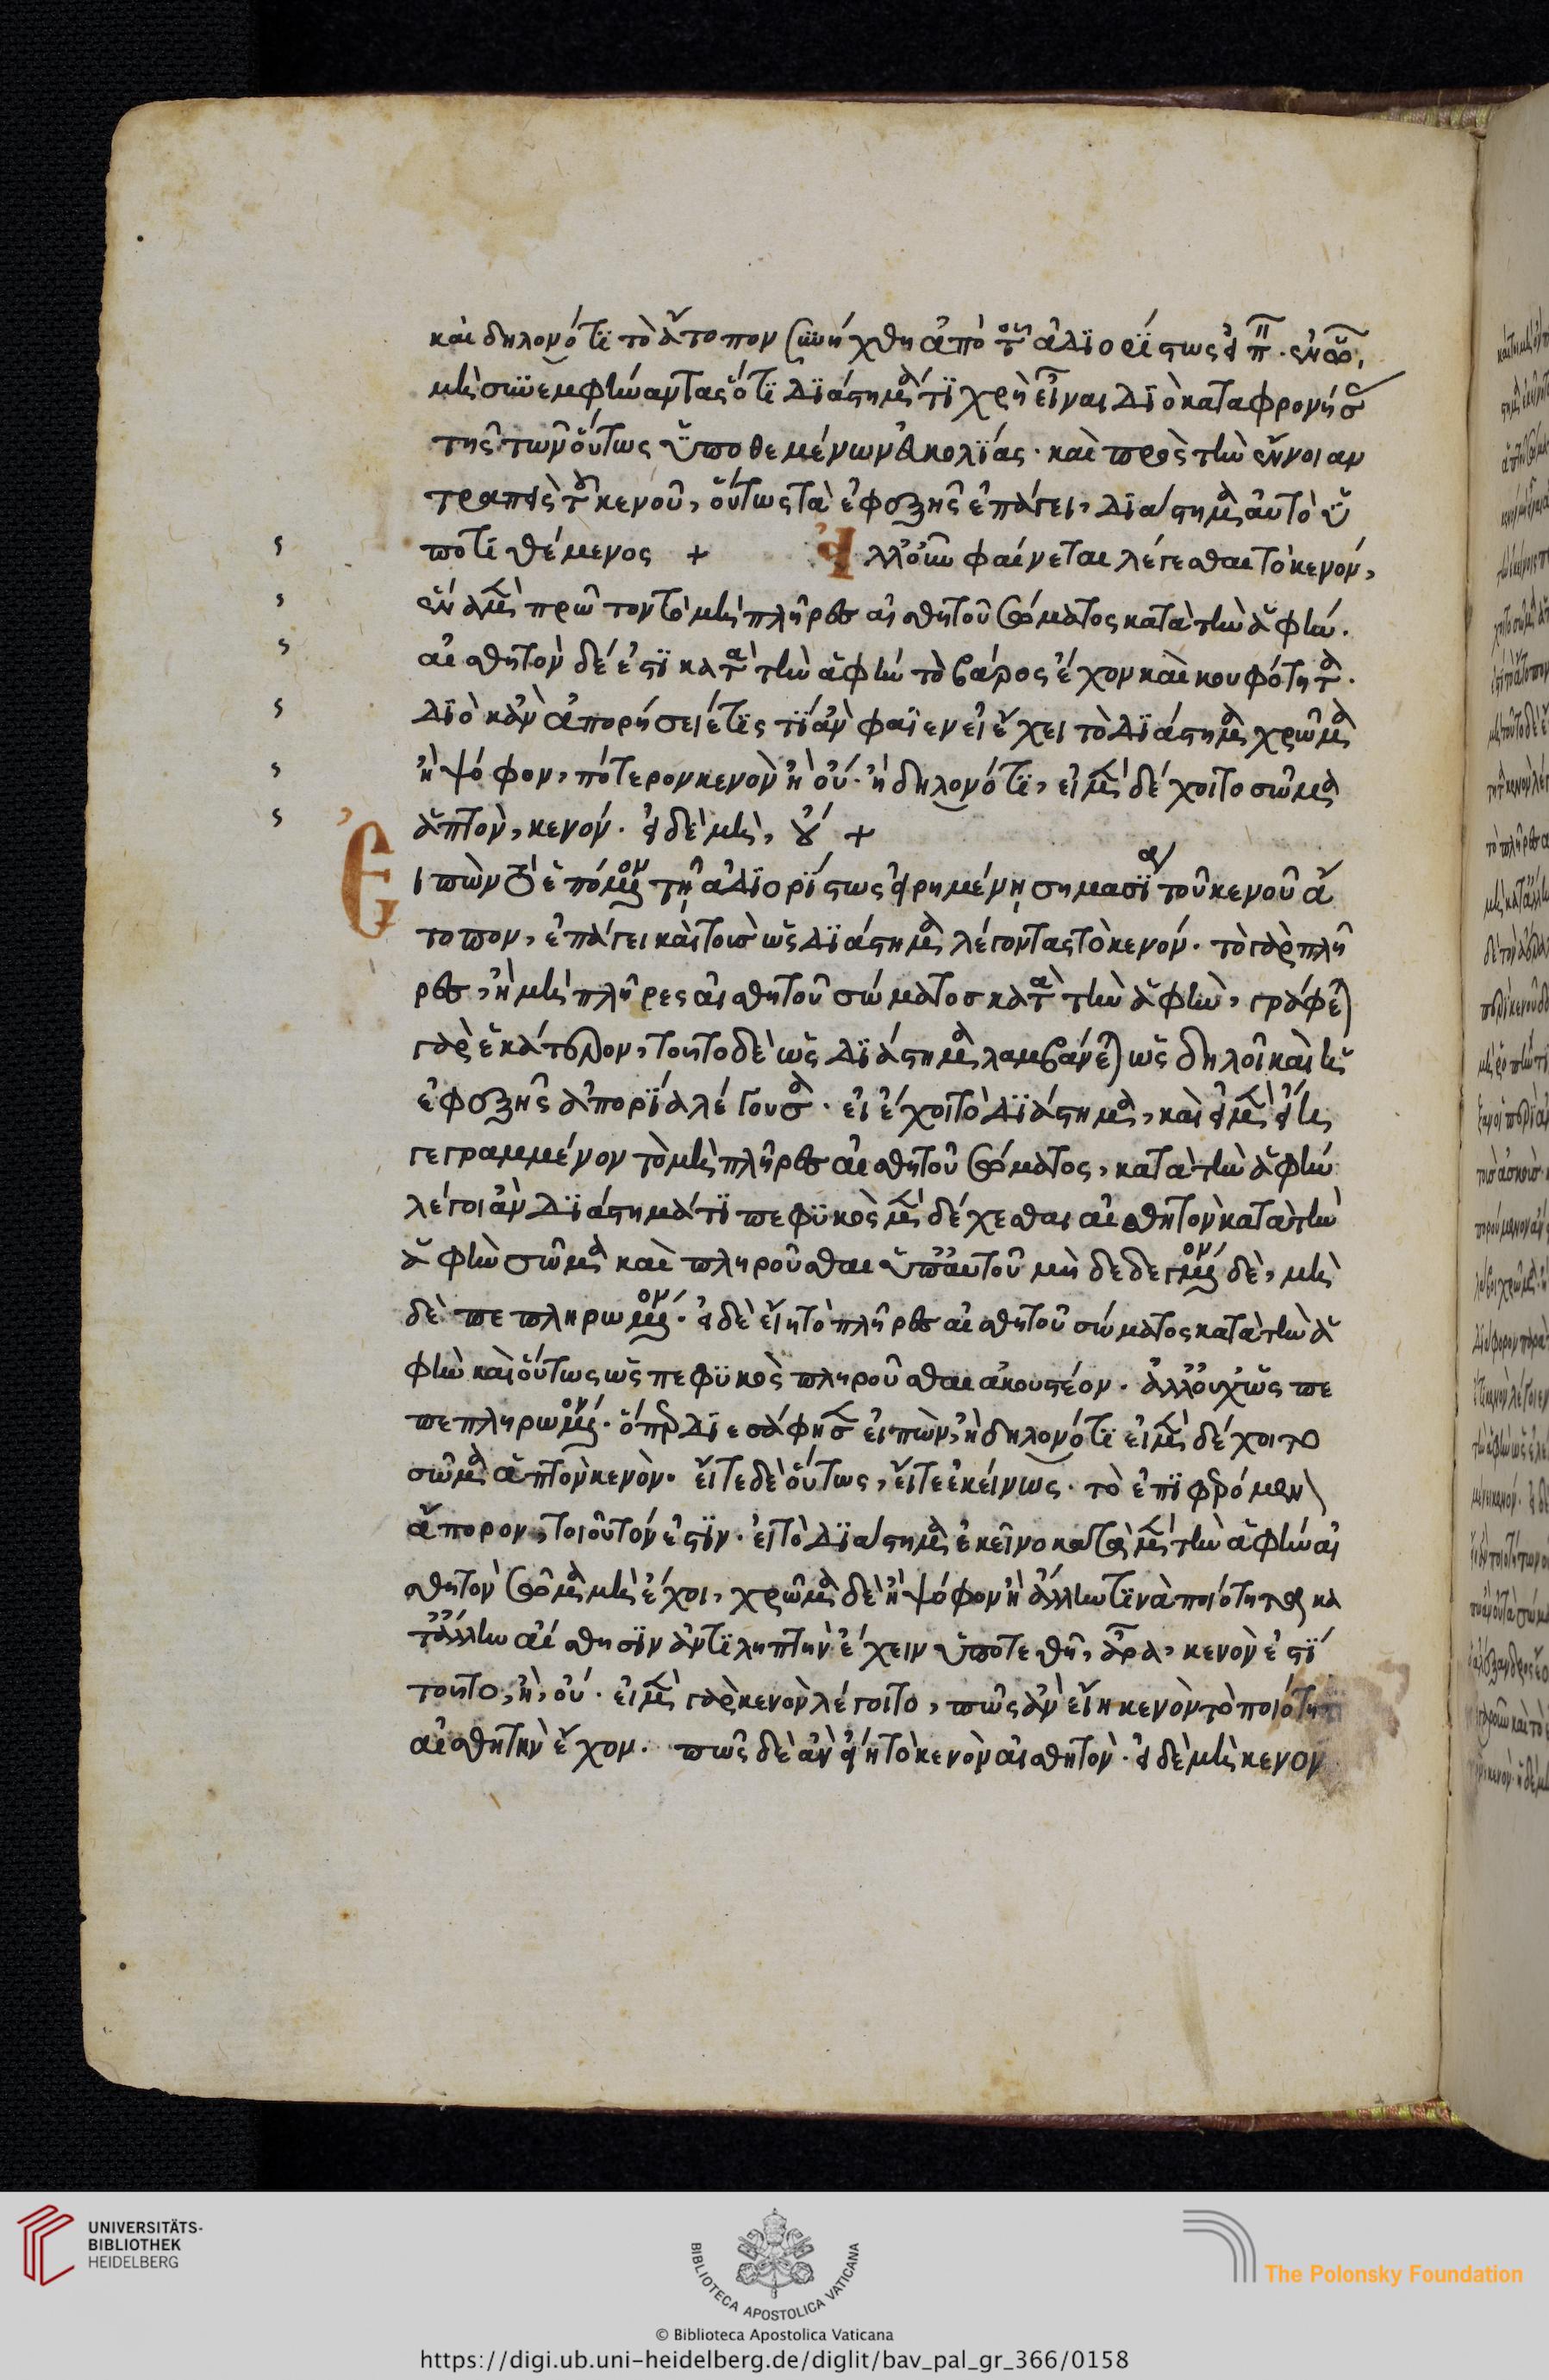 καὶ δηλονότι τὸ ἄτοπον συνήχθη ἀπὸ τοῦ ἀδιορίστως εἰπ
μὴ συνεμφήναντας ὅτι διάστημά τι χρὴ εἶναι διὸ καταφρονήσας
τῆς τῶν οὕτως ὑποθεμένων εὐκολίας· καὶ πρὸς τὴν ἔννοιαν
τραπεὶς τοῦ κενοῦ, οὕτως τὰ ἐφεξῆς ἐπάγει, διάστημα αὐτὸ ὑ
ποτιθέμενος +   ἀλλ' οὖν φαίνεται λέγεσθαι τὸ κενόν,
ἓν μὲν πρῶτον τὸ μὴ πλῆρες αἰσθητοῦ σώματος κατὰ τὴν ἁφήν.
αἰσθητὸν δέ ἐστι κατὰ τὴν ἁφὴν τὸ βάρος ἔχον καὶ κουφότητα.
διὸ κἂν ἀπορήσειέ τις τί ἂν φαῖεν εἰ ἔχει τὸ διάστημα χρῶμα
ἢ ψόφον, πότερον κενὸν ἢ οὔ· ἢ δηλονότι, εἰ μὲν δέχοιτο σῶμα
ἁπτὸν, κενόν. εἰ δὲ μὴ, οὔ +
Εἰπὼν τὸ ἑπόμενον τῇ ἀδιορίστως εἰρημένῃ σημασίᾳ τοῦ κενοῦ ἄ
τοπον, ἐπάγει καὶ τοῖς ὡς διάστημα λέγοντας τὸ κενόν. τὸ γὰρ πλῆ
ρες, ἢ μὴ πλῆρες αἰσθητοῦ σώματος κατὰ τὴν ἁφὴν, γράφεται
γὰρ ἑκάτερον, τοῦτο δὲ ὡς διάστημα λαμβάνεται ὡς δηλοῖ καὶ ἡ
ἐφεξῆς ἀπορία λέγουσα· εἰ ἔχοι τὸ διάστημα, καὶ εἰ μὲν εἴη
γεγραμμένον τὸ μὴ πλῆρες αἰσθητοῦ σώματος, κατὰ τὴν ἁφὴν
λέγοι ἂν διάστημά τι πεφυκὸς μὲν δέχεσθαι αἰσθητὸν κατὰ τὴν
ἁφὴν σῶμα καὶ πληροῦσθαι ὑπ' αὐτοῦ μὴ δεδεγμένον δὲ, μὴ
δὲ πεπληρωμένον· εἰ δὲ εἴη τὸ πλῆρες αἰσθητοῦ σώματος κατὰ τὴν ἁ
φὴν καὶ οὕτως ὡς πεφυκὸς πληροῦσθαι ἀκουστέον. ἀλλ' οὐχ ὡς πε
πεπληρωμένον· ὅπερ διεσάφησεν εἰπὼν, ἢ δηλονότι εἰ μὲν δέχοιτο
σῶμα ἁπτὸν κενὸν. εἴτε δὲ οὕτως, εἴτε ἐκείνως. τὸ ἐπιφερόμενον
ἄπορον, τοιοῦτόν ἐστιν. εἰ τὸ διάστημα ἐκεῖνο κατὰ μὲν τὴν ἁφὴν αἰ
σθητὸν σῶμα μὴ ἔχοι, χρῶμα δὲ ἢ ψόφον ἢ ἄλλην τινὰ ποιότητα κα
τ' ἄλλην αἴσθησιν ἀντιληπτὴν ἔχειν ὑποτεθῇ, ἆρα, κενὸν ἐστι
τοῦτο, ἢ, οὔ. εἰ μὲν γὰρ κενὸν λέγοιτο, πῶς ἂν εἴη κενὸν τὸ ποιότητα
αἰσθητὴν ἔχον. πῶς δὲ ἂν εἴη τὸ κενὸν αἰσθητὸν. εἰ δὲ μὴ κενὸν
UNIVERSITÄTS-
BIBLIOTHEK
HEIDELBERG
BIBLIOTECA APOSTOLICA VATICANA
The Polonsky Foundation
© Biblioteca Apostolica Vaticana
https://digi.ub.uni-heidelberg.de/diglit/bav_pal_gr_366/0158